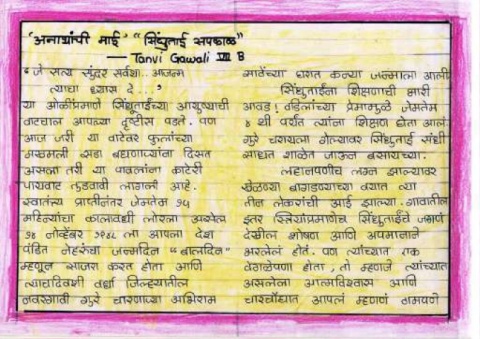 "अनाथांची माई" "सिंधुताई सपकाळ"
— Tanvi Gawali VIII B
"जे सत्य सुंदर सर्वथा.. आजन्म
त्याचा ध्यास दे..."
या ओळींप्रमाणे सिंधूताईंच्या आयुष्याची
वाटचाल आपल्या दृष्टीस पडते. पण
आज जरी या वाटेवर फुलांच्या
मखमली सडा बघणाऱ्यांना दिसत
असला तरी या पावलांना काटेरी
पायवाट तुडवावी लागली आहे.
स्वातंत्र्य प्राप्तीनंतर जेमतेम १५
महिन्यांचा कालावधी लोटला असेल
१४ नोव्हेंबर १९४८ ला आपला देश
पंडित नेहरूंचा जन्मदिन "बालदिन"
म्हणून साजरा करत होता आणि
त्याचदिवशी वर्धा जिल्ह्यातील
नवरगावी गुरे चारणाऱ्या अभिराम
साठेंच्या घरात कन्या जन्माला आली
सिंधुताईंना शिक्षणाची भारी
आवड! वडिलांच्या प्रेमामुळे जेमतेम
४ थी पर्यंत त्यांना शिक्षण होता आलं.
गुरे चरायला गेल्यावर सिंधुताई संधी
साधत शाळेत जाऊन बसायच्या.
लहानपणीच लग्न झाल्यावर
खेळण्या बागडण्याच्या वयात त्या
तीन लेकरांची आई झाल्या. गावातील
इतर स्त्रियांप्रमाणेच सिंधुताईंचे जगणं
देखील शोषण आणि अपमानाने
भरलेलं होतं. पण त्यांच्यात एक
वेगळेपणा होता, तो म्हणजे त्यांच्यात
असलेला आत्मविश्वास आणि
चारचौघात आपलं म्हणणं ठामपणे